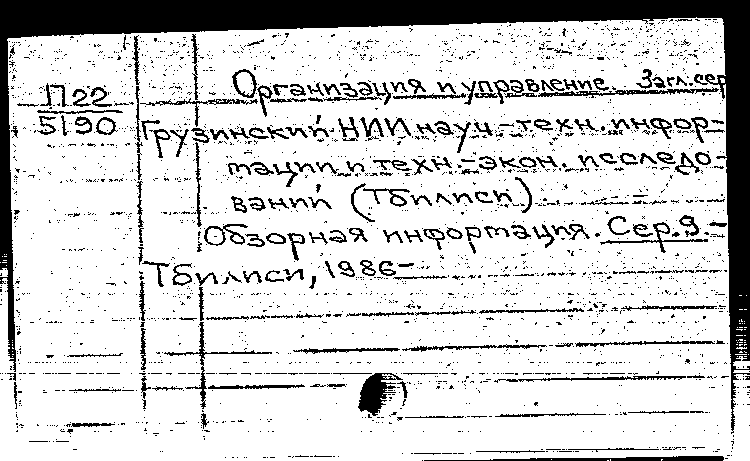 Организация и управление. Загл. сер.
П22
5190
Грузинский НИИ науч.-техн. инфор-
мации и техн.-экон. исследо-
ваний (Тбилиси)
Обзорная информация. Сер. 9.-
Тбилиси, 1986-